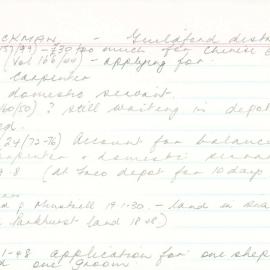 CKMAN - Guildford dist
157/99) - £30 too much for Chinese
(Vol 166/44) - applying for
carpenter
domestic servant.
160/50) ? still waiting in depot
(24/72-76) Account for balance
carpenter & domestic
8 (At Toco depot for 10 day
& Minstrell 19.1.30. - land in
Parkhurst land 1848)
1-48 application for one shep
one Groom